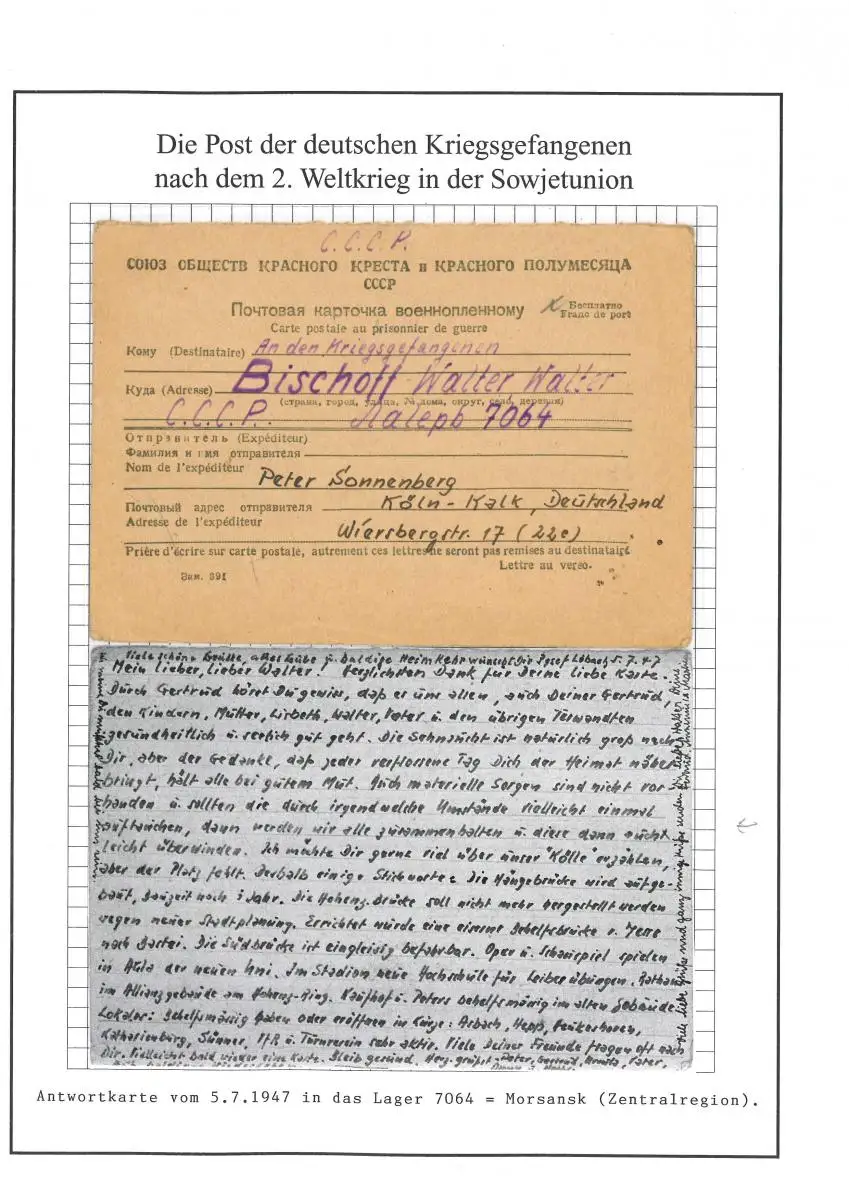 Die Post der deutschen Kriegsgefangenen
nach dem 2. Weltkrieg in der Sowjetunion
С.С.С.Р.
СОЮЗ ОБЩЕСТВ КРАСНОГО КРЕСТА и КРАСНОГО ПОЛУМЕСЯЦА
СССР
Почтовая карточка военнопленному Бесплатно
Carte postale au prisonnier de guerre Franc de port
Кому (Destinataire) An den Kriegsgefangenen
Куда (Adresse) Bischoff Walter Walter
(страна, город, улица, № дома, округ, село, деревня)
С.С.С.Р. Лагерь 7064
Отправитель (Expéditeur)
Фамилия и имя отправителя
Nom de l'expéditeur Peter Sonnenberg
Почтовый адрес отправителя Köln-Kalk, Deutschland
Adresse de l'expéditeur Wiersbergstr. 17 (22c)
Prière d'écrire sur carte postale, autrement ces lettres ne seront pas remises au destinataire
Lettre au verso.
Зак. 391
Viele schöne Grüße, alles Liebe u. baldige Heimkehr wünscht Dir Josef 5.7.47
Mein lieber, lieber Walter! Herzlichsten Dank für Deine liebe Karte.
Durch Gertrud hörst Du gewiss, daß es uns allen, auch Deiner Gertrud,
den Kindern, Mutter, Lisbeth, Walter, Vater u. den übrigen Verwandten
gesundheitlich u. seelisch gut geht. Die Sehnsucht ist natürlich groß nach
Dir, aber der Gedanke, daß jeder verflossene Tag Dich der Heimat näher
bringt, hält alle bei gutem Mut. Auch materielle Sorgen sind nicht vor-
handen u. sollten die durch irgendwelche Umstände vielleicht einmal
auftauchen, dann werden wir alle zusammenhalten u. diese dann auch
leicht überwinden. Ich möchte Dir gerne viel über unser "Kölle" erzählen,
aber der Platz fehlt. Deshalb einige Stichworte: Die Hängebrücke wird aufge-
baut, Bauzeit noch 1 Jahr. Die Hohenz. Brücke soll nicht mehr hergestellt werden
wegen neuer Stadtplanung. Errichtet wurde eine eiserne Behelfsbrücke v.
nach Bastei. Die Südbrücke ist eingleisig befahrbar. Oper u. Schauspiel spielen
in Aula der neuen Uni. Im Stadion neue Hochschule für Leibesübungen. Rathaus
im Allianzgebäude am Hohenz.-Ring. Kaufhof u. Peters behelfsmäßig im alten Gebäude.
Lokale: Behelfsmäßig haben oder eröffnen in Kürze: Arbach,
Katharienburg, Sünner, VfR u. Turnverein sehr aktiv. Viele Deiner Freunde fragen oft nach
Dir. Vielleicht bald wieder eine Karte. Bleib gesund. Herz. grüßt Peter, Gertrud, Vater,
Antwortkarte vom 5.7.1947 in das Lager 7064 = Morsansk (Zentralregion).